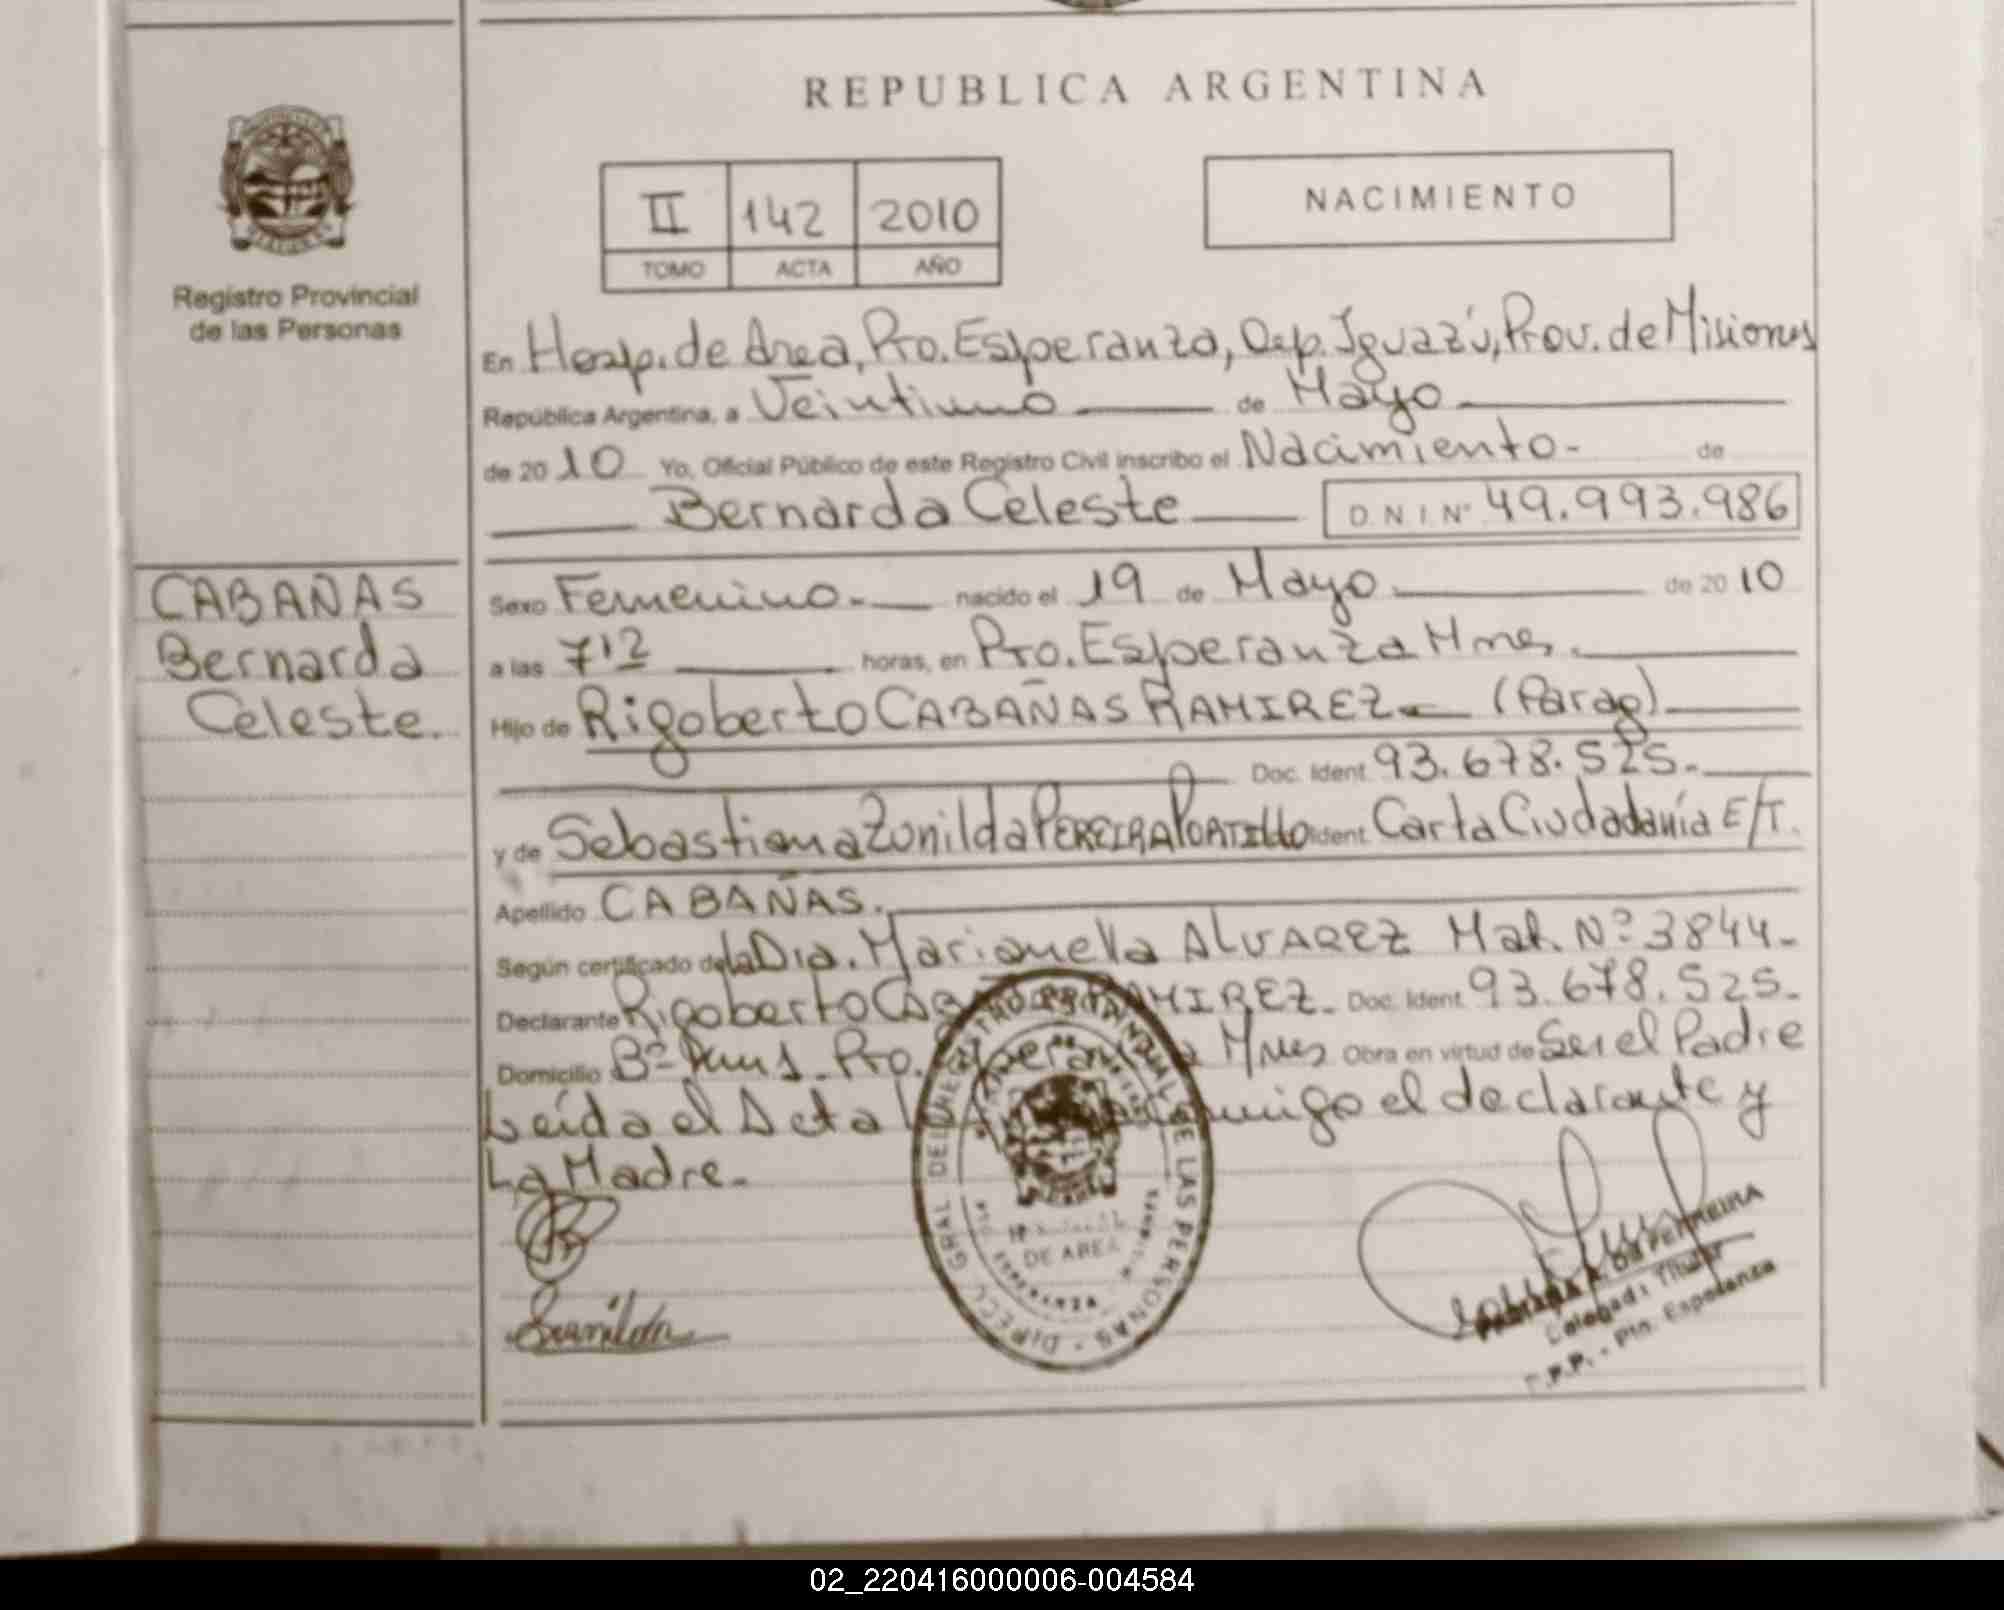 REPUBLICA ARGENTINA
II 142 2010
TOMO ACTA AÑO
NACIMIENTO
Registro Provincial
de las Personas
CABAÑAS
Bernarda
Celeste.
En Hosp. de Area, Pto. Esperanza, Dep. Iguazú, Prov. de Misiones
República Argentina, a Veintiuno de Mayo
de 2010 Yo, Oficial Público de este Registro Civil inscribo el Nacimiento - de
Bernarda Celeste D N I Nº 49.993.986
Sexo Femenino. nacido el 19 de Mayo de 2010
a las 712 horas, en Pto. Esperanza Mnes.
Hijo de Rigoberto CABAÑAS RAMIREZ (Parag)
Doc. Ident 93.678.525.
y de Sebastiana Zunilda PEREIRA PORTILLO Ident Carta Ciudadanía E/T.
Apellido CABAÑAS.
Según certificado de la Dra. Marianella ALVAREZ Mat. Nº 3844-
Declarante Rigoberto RAMIREZ. Doc. Ident 93.678.525.
Domicilio Bº Pto. Mnes Obra en virtud de Ser el Padre
Leída el Acta el declarante y
La Madre.
DIRECC. GRAL. DEL REGISTRO PROVINCIAL DE LAS PERSONAS
DE AREA
ESPERANZA
Zunilda
PEREIRA
Delegada Titular
R.P.P. - Pto. Esperanza
02_220416000006-004584